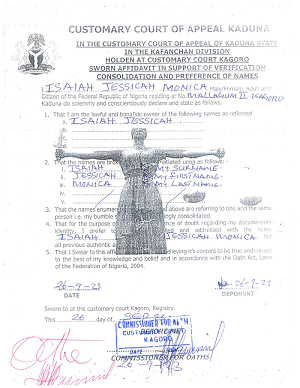 CUSTOMARY COURT OF APPEAL KADUNA
IN THE CUSTOMARY COURT OF APPEAL OF KADUNA STATE
IN THE KAFANCHAN DIVISION
HOLDEN AT CUSTOMARY COURT KAGORO
SWORN AFFIDAVIT IN SUPPORT OF VERIFICATION
CONSOLIDATION AND PREFERENCE OF NAMES
I ISAIAH JESSICAH MONICA Male/Female, Adult and
Citizen of the Federal Republic of Nigeria residing at No. MALLAGUM II KAGORO
Kaduna do solemnly and conscientiously declare and state as follows:
1. That I am the lawful and bonafide owner of the following names as reflected
i. ISAIAH JESSICAH
ii.
2. That the names are follows: -
i. ISAIAH MY SURNAME
ii. JESSICAH MY FIRSTNAME
iii. MONICA MY LASTNAME
iv.
v.
3. That the names enumerated above are referring to one and the same
person i.e. my humble consolidated.
4. That for the purpose of doubt regarding my documentary
identity, I prefer to and addressed with the name
ISAIAH JESSICAH MONICA
all previous authentic
5. That I Swear to this content to be true and correct
to the best of my knowledge and belief and in accordance with the Oath Act, Laws
of the Federation of Nigeria, 2004.
26-9-23 26-9-23
DATE DEPONENT
Sworn to at the customary court Kagoro, Registry.
This 26 day of SEP.
COMMISSIONER FOR OATH
BEFORE ME
KAGORO
DATE
COMMISSIONER FOR OATHS
26-9-23